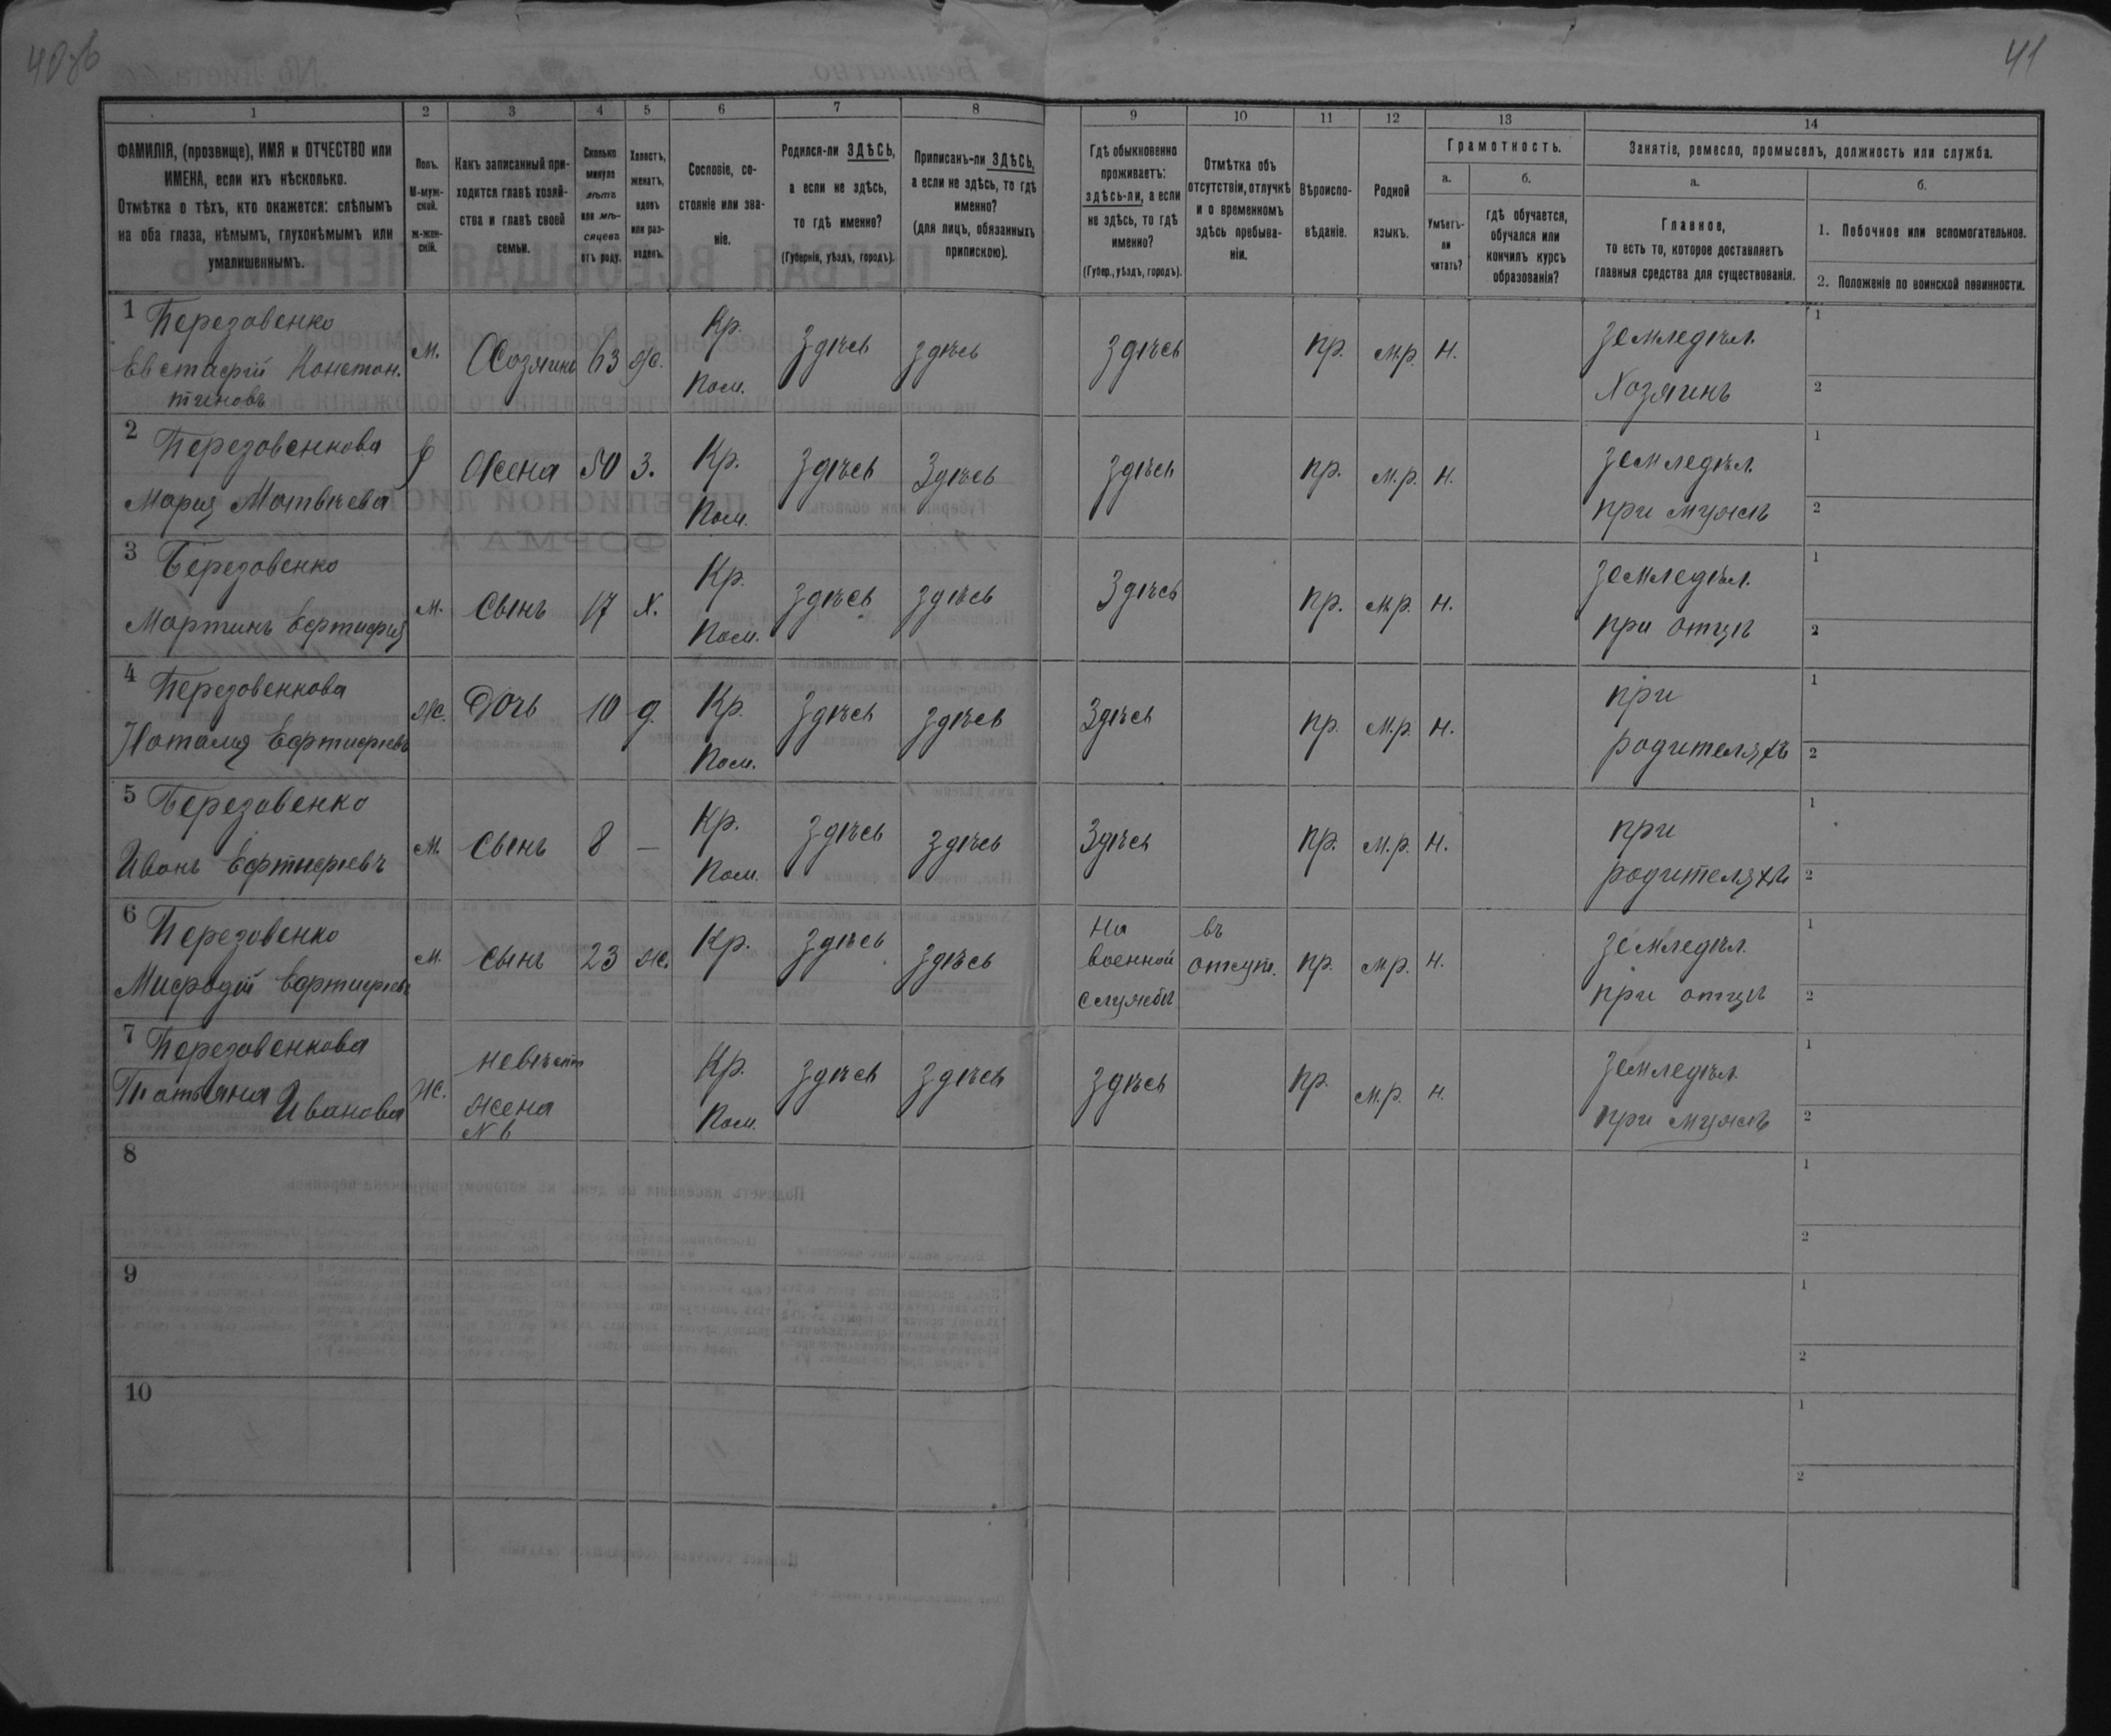 40об
41
1
2
3
4
5
6
7
8
9
10
11
12
13
14
ФАМИЛІЯ, (прозвище), ИМЯ и ОТЧЕСТВО или
ИМЕНА, если ихъ нѣсколько.
Отмѣтка о тѣхъ, кто окажется: слѣпымъ
на оба глаза, нѣмымъ, глухонѣмымъ или
умалишеннымъ.
Полъ.
М-муж-
ской.
ж-жен-
скій.
Какъ записанный при-
ходится главѣ хозяй-
ства и главѣ своей
семьи.
Сколько
минуло
лѣтъ
или мѣ-
сяцевъ
отъ роду.
Холостъ,
женатъ,
вдовъ
или раз-
веденъ.
Сословіе, со-
стояніе или зва-
ніе.
Родился-ли ЗДѢСЬ,
а если не здѣсь,
то гдѣ именно?
(Губернія, уѣздъ, городъ).
Приписанъ-ли ЗДѢСЬ,
а если не здѣсь, то гдѣ
именно?
(для лицъ, обязанныхъ
припискою).
Гдѣ обыкновенно
проживаетъ:
здѣсь-ли, а если
не здѣсь, то гдѣ
именно?
(Губер., уѣздъ, городъ).
Отмѣтка объ
отсутствіи, отлучкѣ
и о временномъ
здѣсь пребыва-
ніи.
Вѣроиспо-
вѣданіе.
Родной
языкъ.
Грамотность.
а.
Умѣетъ-
ли
читать?
б.
гдѣ обучается,
обучался или
кончилъ курсъ
образованія?
Занятіе, ремесло, промыселъ, должность или служба.
а.
Главное,
то есть то, которое доставляетъ
главныя средства для существованія.
б.
1. Побочное или вспомогательное.
2. Положеніе по воинской повинности.
1 Березовенко
Евстафій Констан.
тиновъ
м. Хозяинъ 63 ж. Кр.
Пом.
здѣсь здѣсь здѣсь пр. м.р. н. земледѣл.
Хозяинъ
1
2
2 Березовенкова
Мария Матвѣева
Жена 50 з. Кр.
Пом.
здѣсь здѣсь здѣсь пр. м.р. н. земледѣл.
при мужѣ
1
2
3 Березовенко
Мартинъ
м. сынъ 17 х. Кр.
Пом.
здѣсь здѣсь здѣсь пр. м.р. н. земледѣл.
при отцѣ
1
2
4 Березовенкова
Наталия
ж. дочь 10 д. Кр.
Пом.
здѣсь здѣсь здѣсь пр. м.р. н. при
родителяхъ
1
2
5 Березовенко
Иванъ
м. сынъ 8 — Кр.
Пом.
здѣсь здѣсь здѣсь пр. м.р. н. при
родителяхъ
1
2
6 Березовенко
Мифодій
м. сынъ 23 ж. Кр.
здѣсь здѣсь на
военной
службѣ
въ
отсут.
пр. м.р. н. земледѣл.
при отцѣ
1
2
7 Березовенкова
Татьяна Иванова
ж. невѣст
жена
N 6
Кр.
Пом.
здѣсь здѣсь здѣсь пр. м.р. н. земледѣл.
при мужѣ
1
2
8
1
2
9
1
2
10
1
2